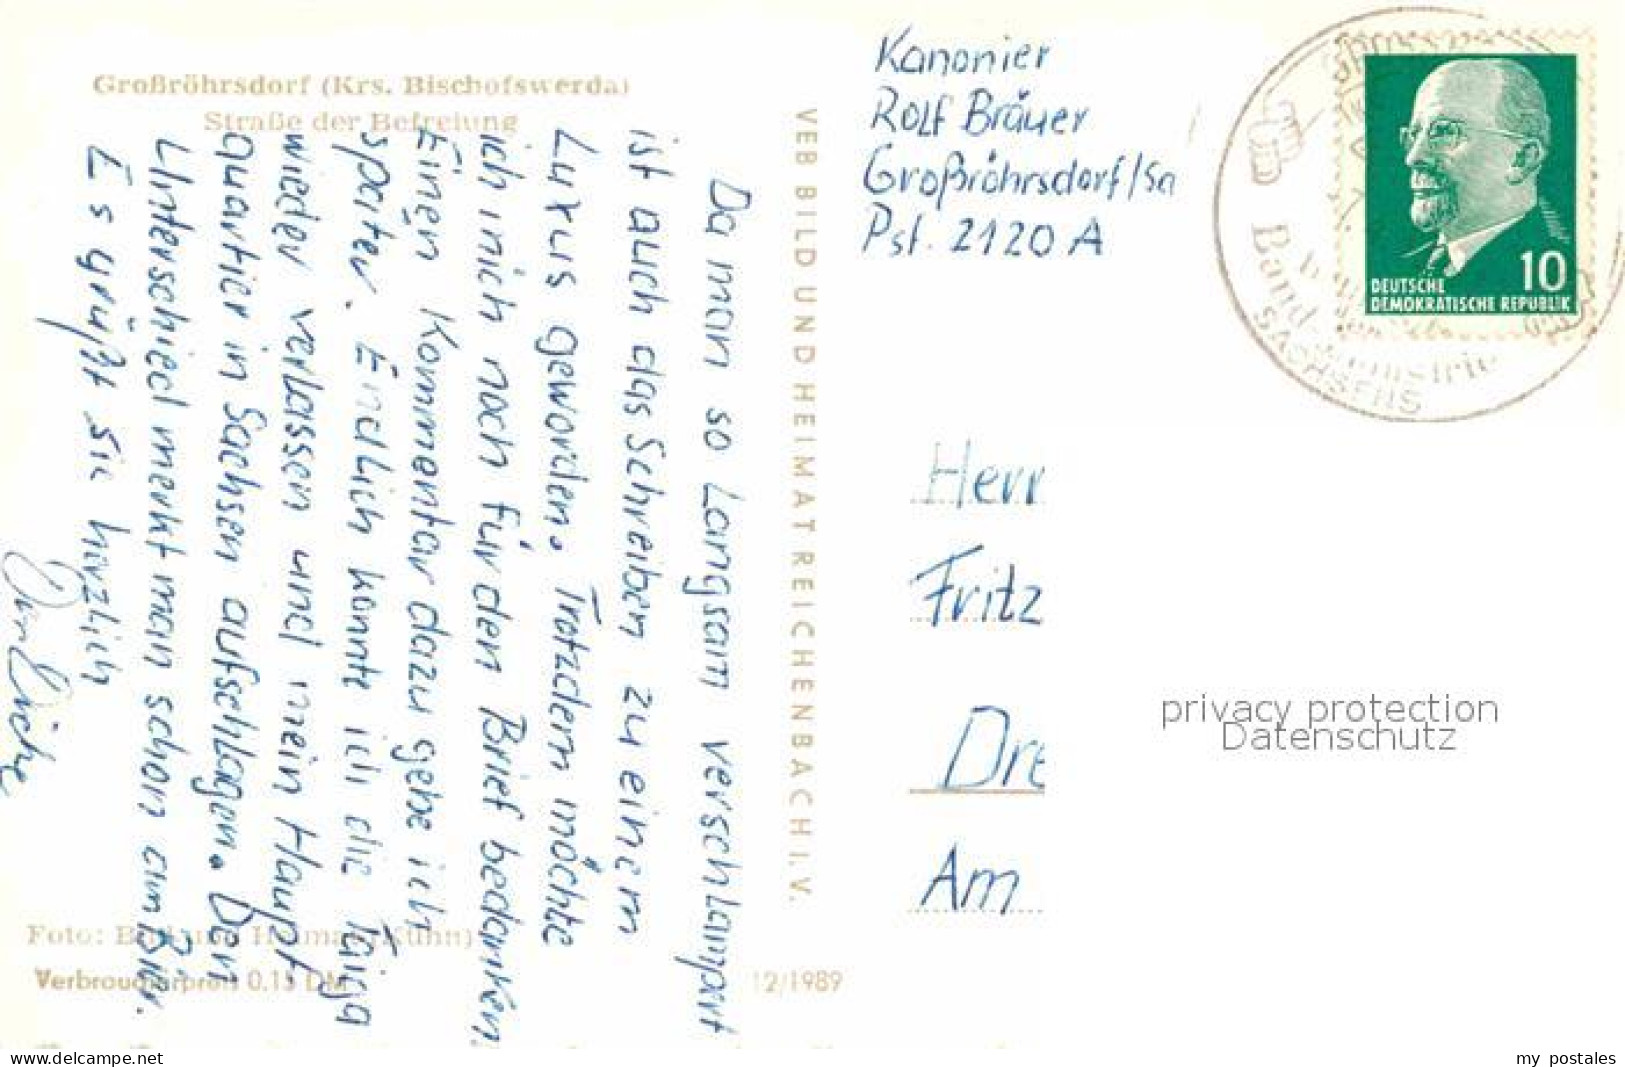 Großröhrsdorf (Krs. Bischofswerda)
Straße der Befreiung
Da man so Langsam verschlampert
ist auch das Schreiben zu einem
Luxus geworden. Trotzdem möchte
ich mich noch für den Brief bedanken
Einen Kommentar dazu gebe ich
später. Endlich konnte ich die Taiga
wieder verlassen und mein Haupt
quartier in Sachsen aufschlagen. Den
Unterschied merkt man schon am Bier.
Es grüßt Sie herzlich
Foto: Bild und Heimat (Kühn)
Verbraucherpreis 0.15 DM
12/1989
VEB BILD UND HEIMAT REICHENBACH I. V.
Kanonier
Rolf Bräuer
Großröhrsdorf/Sa
Psf. 2120 A
Band-
SACHSENS
10
DEUTSCHE
DEMOKRATISCHE REPUBLIK
Herr
Fritz
Dre
Am
privacy protection
Datenschutz
www.delcampe.net
my_postales